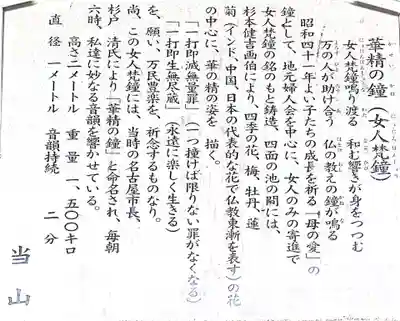 華精の鐘(女人梵鐘)
女人梵鐘鳴り渡る 和む響きが身をつつむ
万の人が助け合う 仏の教えの鐘が鳴る
昭和四十一年よい子たちの成長を祈る「母の愛」の
鐘として、地元婦人会を中心に、女人のみの寄進で
女人梵鐘の銘のもと鋳造、四面の池の間には、
杉本健吉画伯により、四季の花、梅、牡丹、蓮
菊(インド、中国、日本の代表的な花で仏教東漸を表す)の花
の中心に、華の精の姿を 描く。
「一打即滅無量罪」(一つ撞けば限りない罪がなくなる)
「一打即生無尽蔵」(永遠に楽しく生きる)
を、願い、万民豊楽を、祈念するものなり。
尚、この女人梵鐘には、当時の名古屋市長、
杉戸 清氏により「華精の鐘」と命名され、毎朝
六時、私達に妙なる音韻を響かせている。
高さ二メートル 重量 一、五〇〇キロ
直径 一メートル 音韻持続 二 分
当山